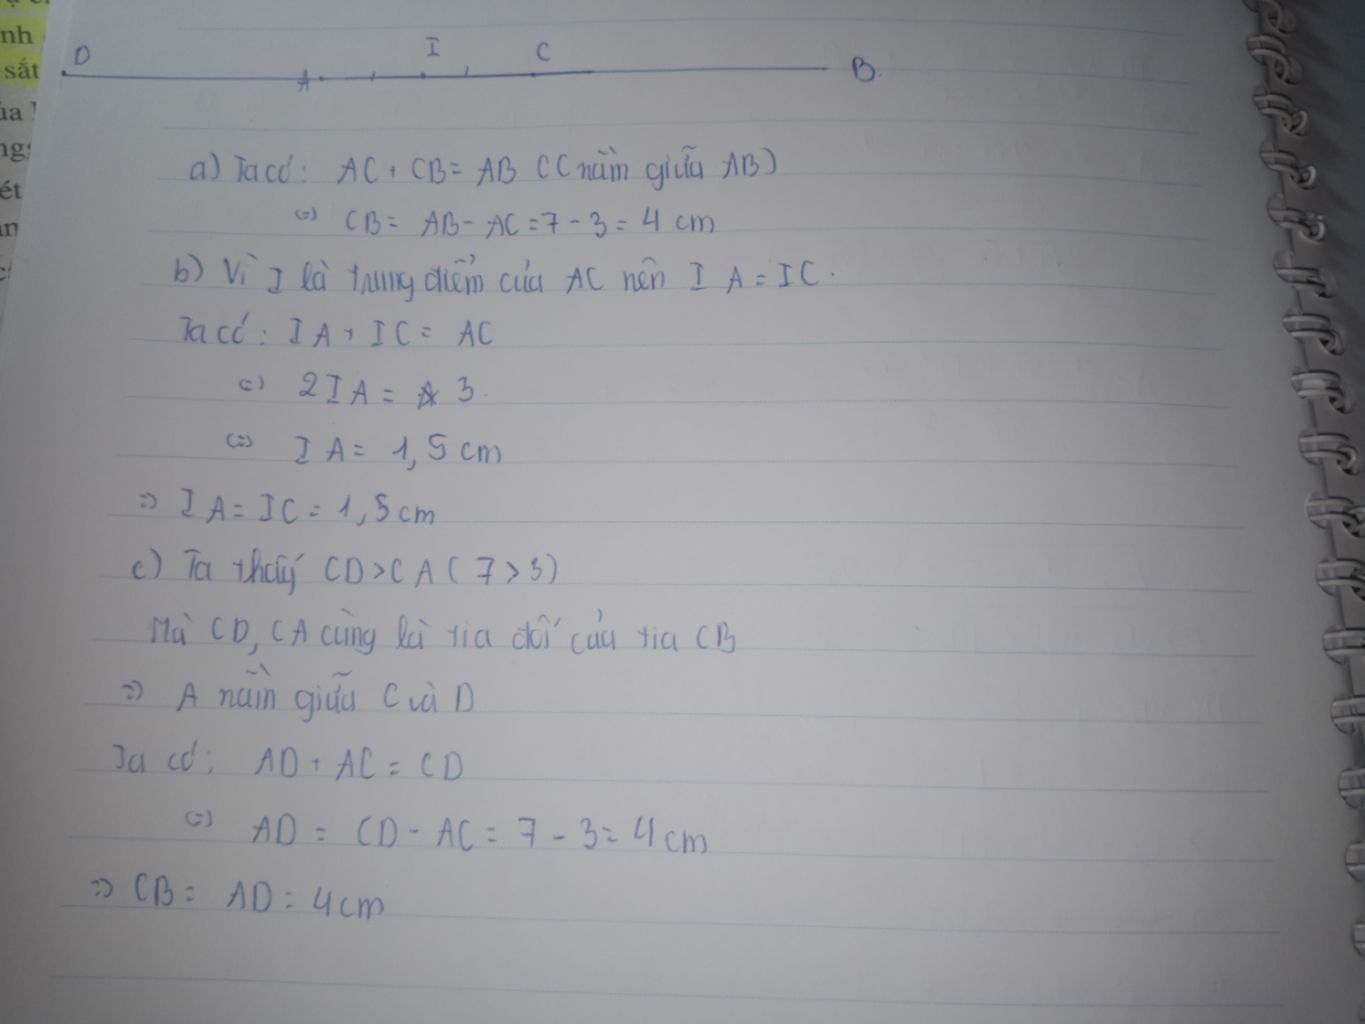 nh
sắt
ủa
ng
ét
D A I C B
a) Ta có: AC + CB = AB (C nằm giữa AB)
(=) CB = AB - AC = 7 - 3 = 4 cm
b) Vì I là trung điểm của AC nên IA = IC.
Ta có: IA + IC = AC
(=) 2IA = 3
(=) IA = 1,5 cm
=> IA = IC = 1,5 cm
c) Ta thấy CD > CA (7 > 3)
Mà CD, CA cùng là tia đối của tia CB
=> A nằm giữa C và D
Ta có: AD + AC = CD
(=) AD = CD - AC = 7 - 3 = 4 cm
=> CB = AD = 4 cm